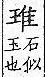 琟
石似
玉也